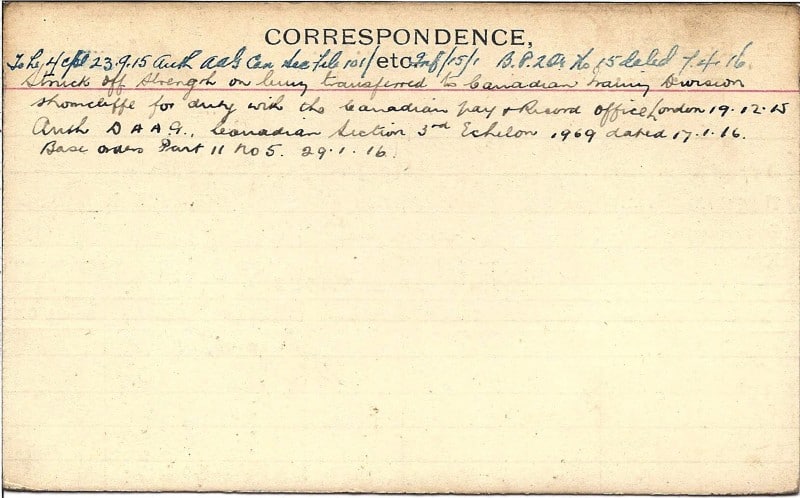 CORRESPONDENCE,
To be A/Cpl 23.9.15 Auth AAG Can Sec File 101/ etc Inf/15/1 B.P.2 Or No 15 dated 7.4.16.
Struck off Strength on being transferred to Canadian Training Division
Shorncliffe for duty with the Canadian Pay & Record Office London 19.12.15
Auth D A A G., Canadian Section 3rd Echelon 1969 dated 17.1.16.
Base orders Part 11 No 5. 29.1.16.